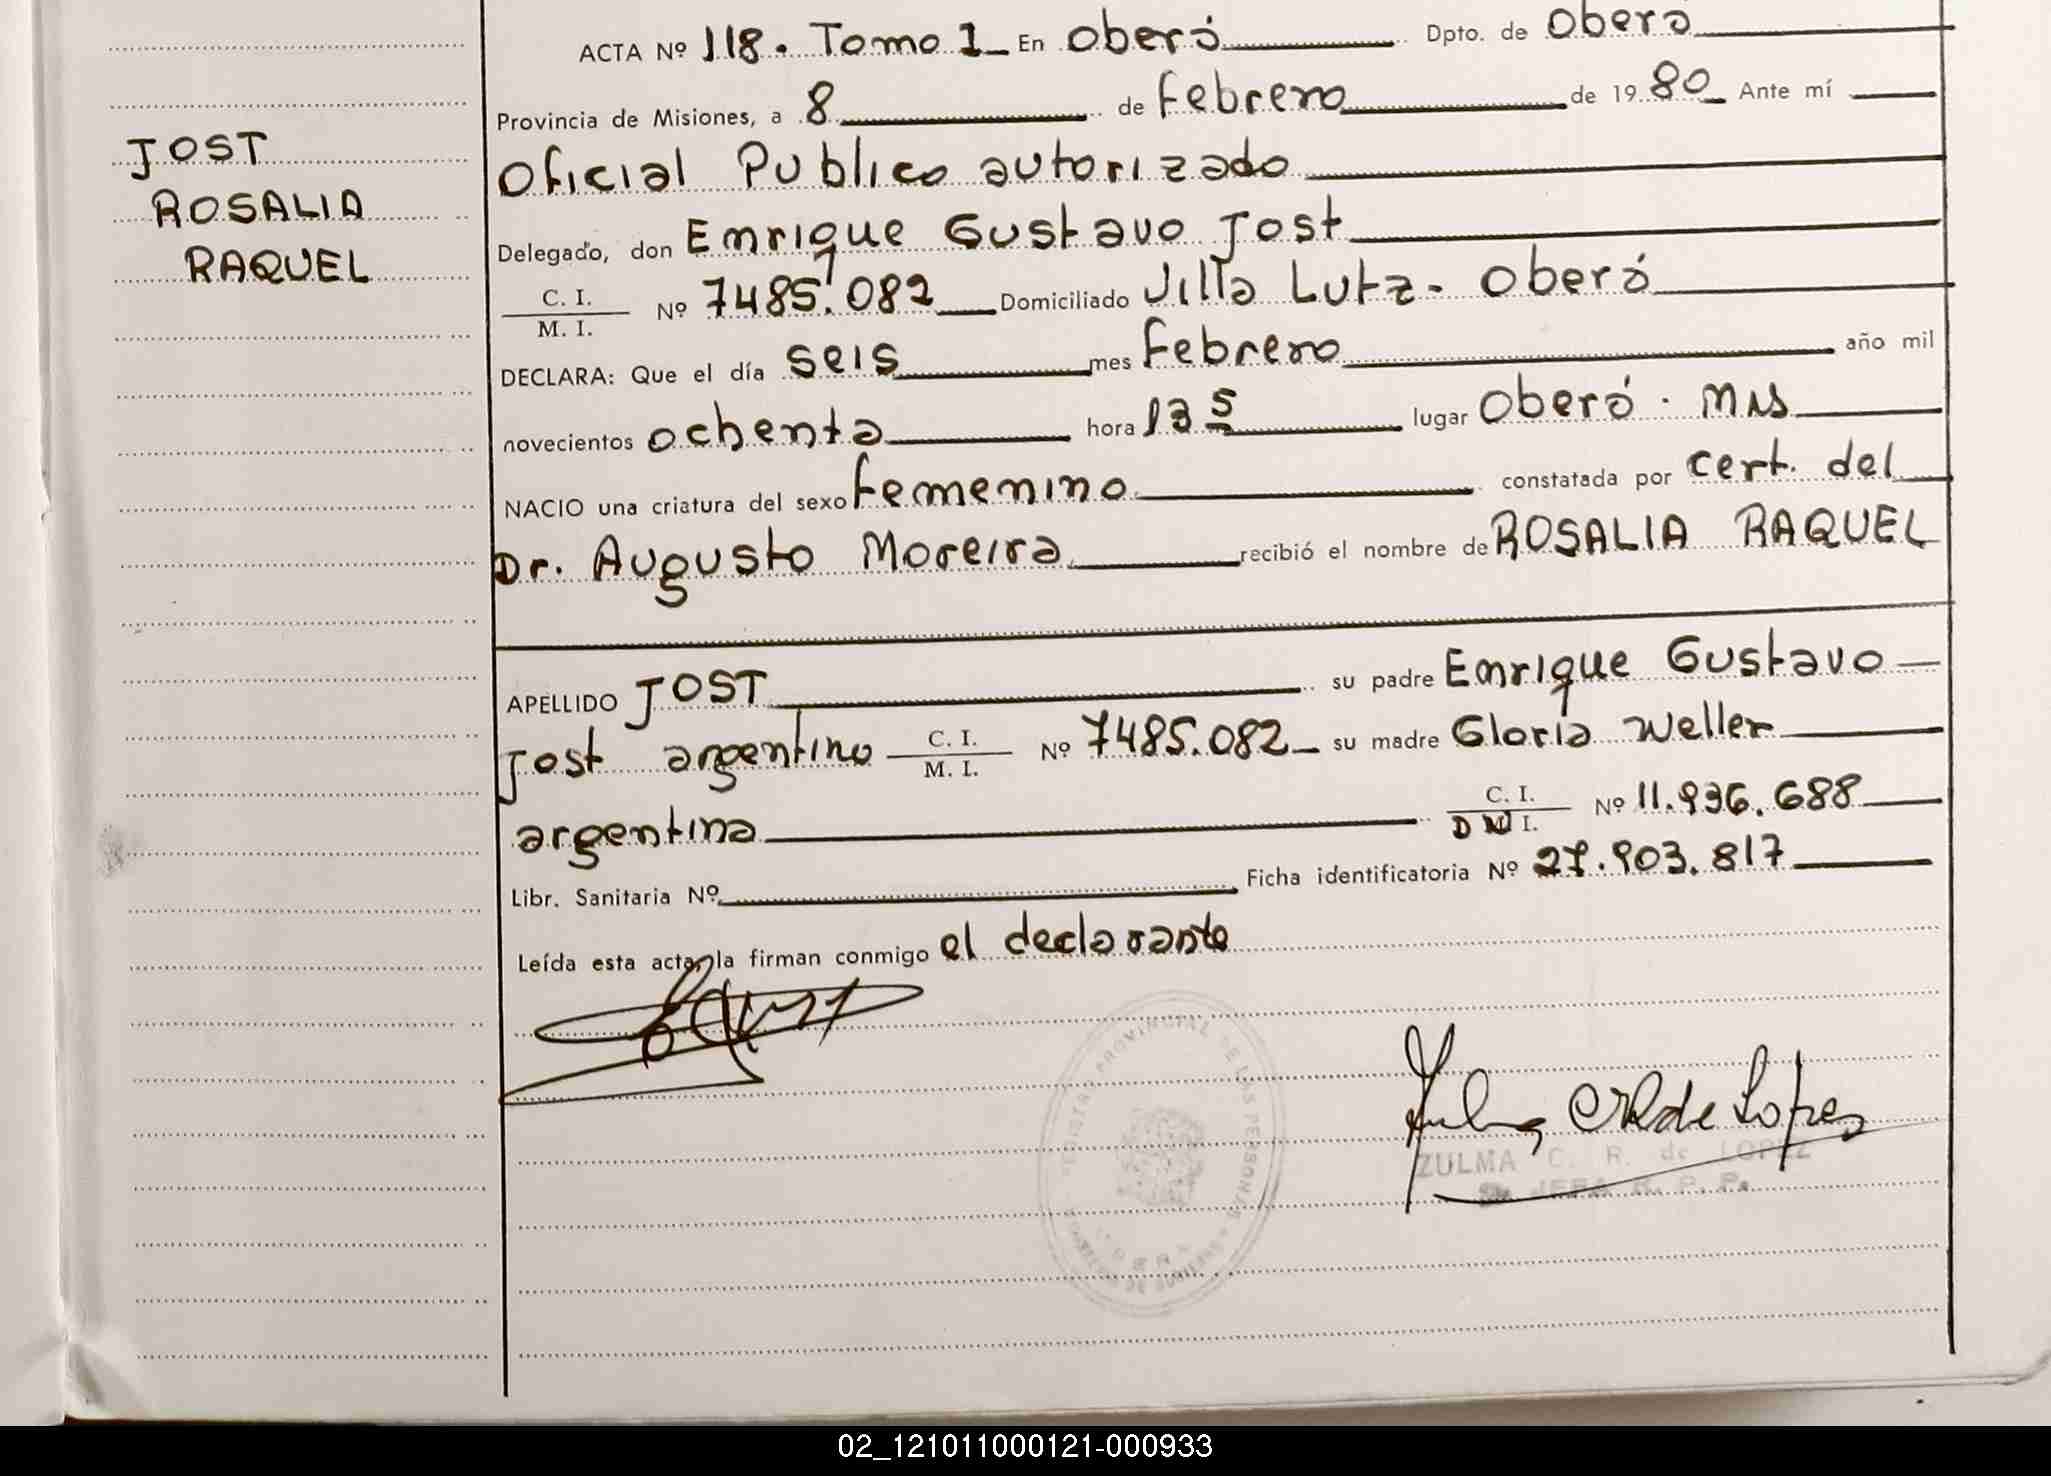 ACTA Nº 118. Tomo 1 En Oberá Dpto. de Oberá
Provincia de Misiones, a 8 de Febrero de 1980 Ante mí
JOST
Oficial Publico autorizado
ROSALIA
Delegado, don Enrique Gustavo Jost
RAQUEL
C. I.
M. I. Nº 7485.082 Domiciliado Villa Lutz - Oberá
DECLARA: Que el día seis mes Febrero año mil
novecientos ochenta hora 13 5 lugar Oberá . Mns
NACIO una criatura del sexo Femenino constatada por cert. del
Dr. Augusto Moreira recibió el nombre de ROSALIA RAQUEL
APELLIDO JOST su padre Enrique Gustavo
Jost argentino C. I. M. I. Nº 7485.082 su madre Gloria Weller
argentina C. I. D N I. Nº 11.936.688
Libr. Sanitaria Nº Ficha identificatoria Nº 27.903.817
Leída esta acta, la firman conmigo el declarante
REGISTRO PROVINCIAL DE LAS PERSONAS
Zulma C R de Lopez
ZULMA C. R. de LOPEZ
JEFA R. P. P.
02_121011000121-000933